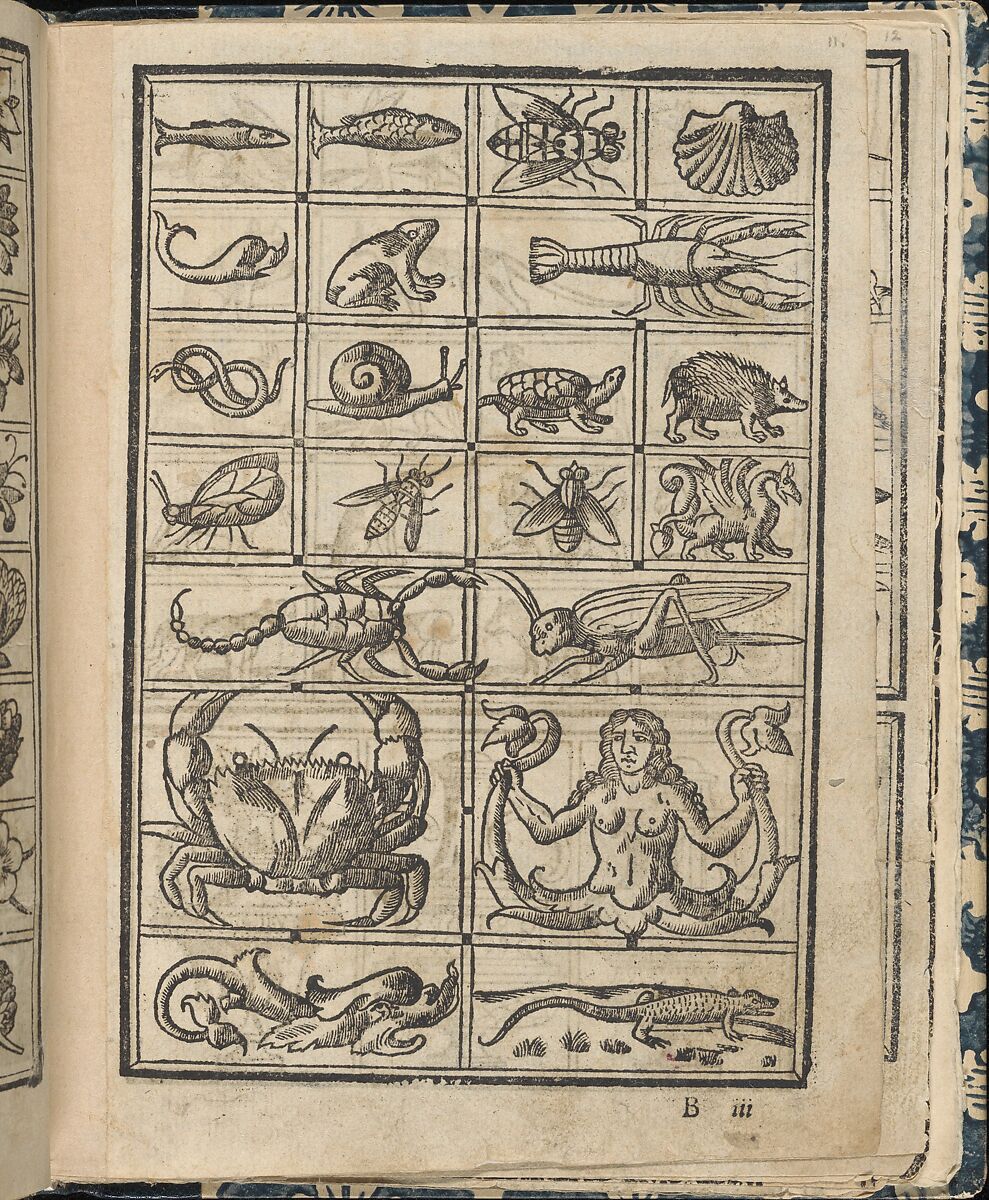 11. 12
B iii